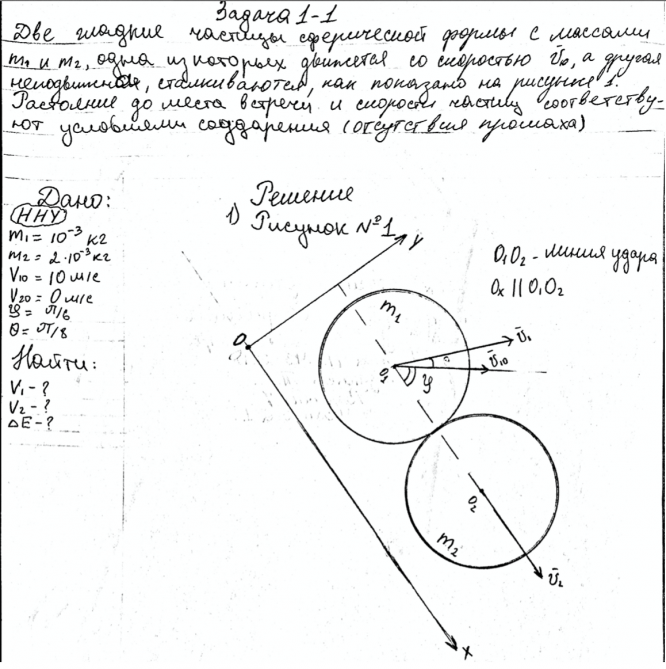 Задача 1-1
Две гладкие частицы сферической формы с массами
m₁ и m₂, одна из которых движется со скоростью v̄₀, а другая
неподвижная, сталкиваются, как показано на рисунке 1.
Растояние до места встречи и скорости частиц соответству-
ют условиям соударения (отсутствия промаха)
Дано:
ННУ
m₁ = 10⁻³ кг
m₂ = 2·10⁻³ кг
V₁₀ = 10 м/с
V₂₀ = 0 м/с
φ = π/6
θ = π/8
Найти:
V₁ - ?
V₂ - ?
ΔE - ?
Решение
1) Рисунок №1
O₁O₂ - линия удара
Ox || O₁O₂
y
O
m₁
O₁
φ
v̄₁
v̄₁₀
O₂
m₂
v̄₂
x